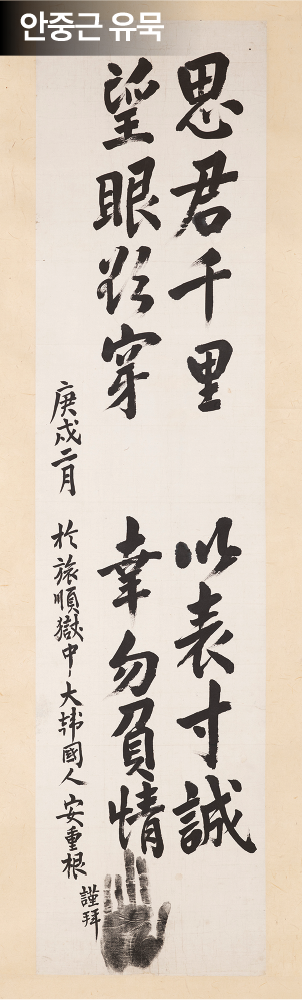 안중근 유묵
思君千里
望眼欲穿
以表寸誠
幸勿負情
庚戌二月 於旅順獄中 大韓國人 安重根 謹拜